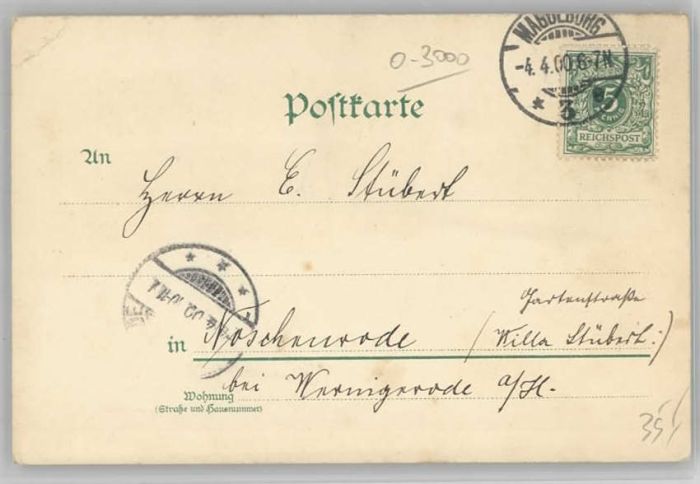 MAGDEBURG
-4.4.00.6-7N.
* 3
0-3000
5
REICHSPOST
Postkarte
An
Herrn E. Stübert
in Noschenrode
Gartenstraße
(Villa Stübert:)
bei Wernigerode a/H.
Wohnung
(Straße und Hausnummer)
35